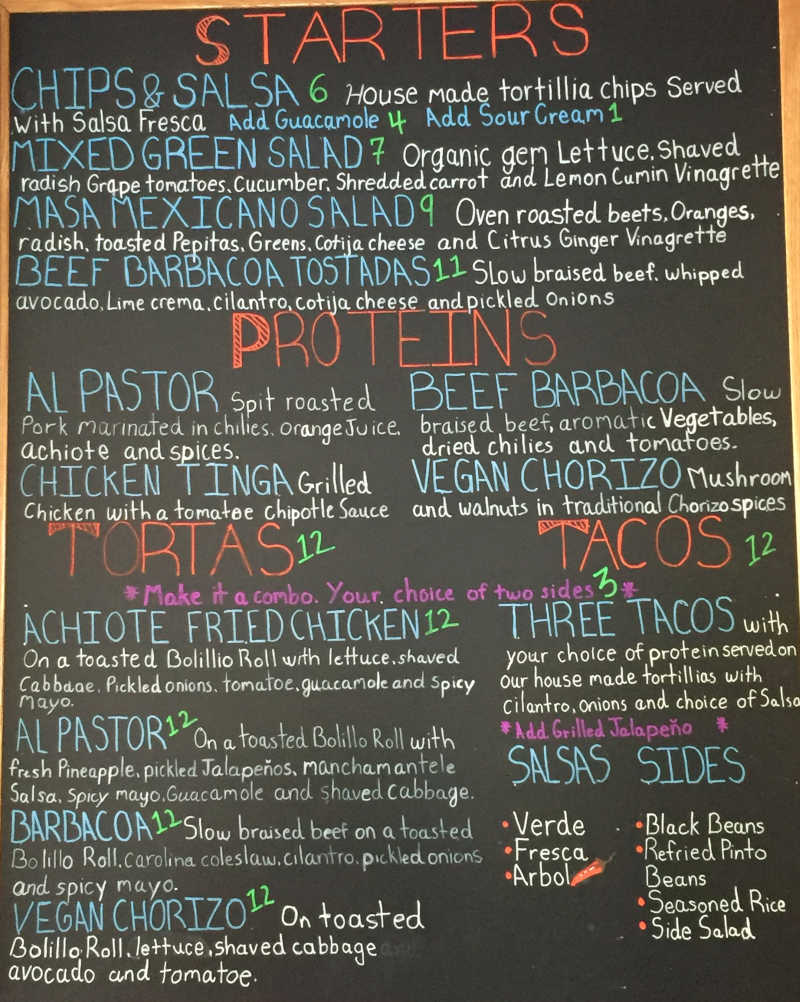 STARTERS
CHIPS & SALSA 6 House made tortillia chips Served
with Salsa Fresca Add Guacamole 4 Add Sour Cream 1
MIXED GREEN SALAD 7 Organic gem Lettuce, Shaved
radish Grape tomatoes, Cucumber, Shredded carrot and Lemon Cumin Vinagrette
MASA MEXICANO SALAD 9 Oven roasted beets, Oranges,
radish, toasted Pepitas, Greens, Cotija cheese and Citrus Ginger Vinagrette
BEEF BARBACOA TOSTADAS 11 Slow braised beef, whipped
avocado, Lime crema, cilantro, cotija cheese and pickled onions
PROTEINS
AL PASTOR Spit roasted
Pork marinated in chilies, orange Juice,
achiote and spices.
CHICKEN TINGA Grilled
Chicken with a tomatoe chipotle Sauce
BEEF BARBACOA Slow
braised beef, aromatic Vegetables,
dried chilies and tomatoes.
VEGAN CHORIZO Mushroom
and walnuts in traditional Chorizo spices
TORTAS 12
TACOS 12
*Make it a combo. Your choice of two sides 3*
ACHIOTE FRIED CHICKEN 12
On a toasted Bolillio Roll with lettuce, shaved
Cabbage, Pickled onions, tomatoe, guacamole and Spicy
Mayo.
AL PASTOR 12 On a toasted Bolillo Roll with
fresh Pineapple, pickled Jalapeños, manchamantele
Salsa, Spicy mayo, Guacamole and shaved cabbage.
BARBACOA 12 Slow braised beef on a toasted
Bolillo Roll, Carolina coleslaw, cilantro, pickled onions
and spicy mayo.
VEGAN CHORIZO 12 On toasted
Bolillo Roll, lettuce, shaved cabbage
avocado and tomatoe.
THREE TACOS with
your choice of protein served on
our house made tortillias with
cilantro, onions and choice of Salsa
*Add Grilled Jalapeño *
SALSAS
• Verde
• Fresca
• Arbol
SIDES
• Black Beans
• Refried Pinto
Beans
• Seasoned Rice
• Side Salad